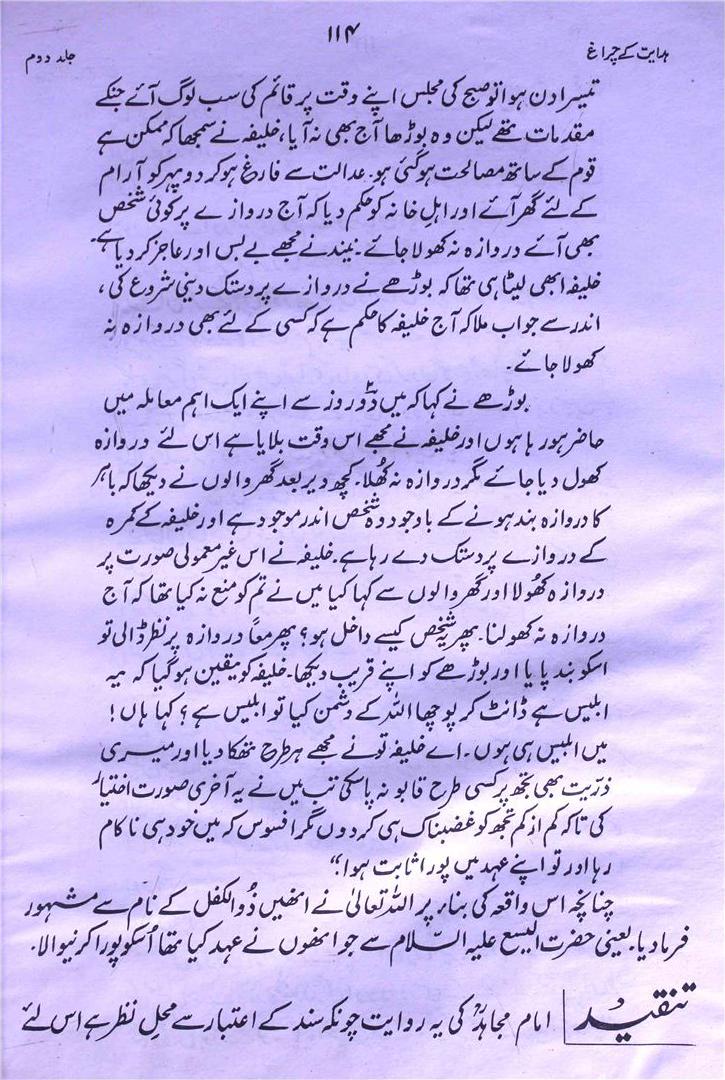 ۱۱۴
ہدایت کے چراغ
جلد دوم
تیسرا دن ہوا تو صبح کی مجلس اپنے وقت پر قائم کی سب لوگ آئے جنکے
مقدمات تھے لیکن وہ بوڑھا آج بھی نہ آیا، خلیفہ نے سمجھا کہ ممکن ہے
قوم کے ساتھ مصالحت ہوگئی ہو۔ عدالت سے فارغ ہو کر دوپہر کو آرام
کے لئے گھر آئے اور اہلِ خانہ کو حکم دیا کہ آج دروازے پر کوئی شخص
بھی آئے دروازہ نہ کھولا جائے۔ نیند نے مجھے بے بس اور عاجز کر دیا ہے۔
خلیفہ ابھی لیٹا ہی تھا کہ بوڑھے نے دروازے پر دستک دینی شروع کی،
اندر سے جواب ملا کہ آج خلیفہ کا حکم ہے کہ کسی کے لئے بھی دروازہ نہ
کھولا جائے۔
بوڑھے نے کہا کہ میں دوّ روز سے اپنے ایک اہم معاملہ میں
حاضر ہو رہا ہوں اور خلیفہ نے مجھے اس وقت بلایا ہے اس لئے دروازہ
کھول دیا جائے مگر دروازہ نہ کھُلا۔ کچھ دیر بعد گھر والوں نے دیکھا کہ باہر
کا دروازہ بند ہونے کے باوجود وہ شخص اندر موجود ہے اور خلیفہ کے کمرہ
کے دروازے پر دستک دے رہا ہے۔ خلیفہ نے اس غیر معمولی صورت پر
دروازہ کھُولا اور گھر والوں سے کہا کیا میں نے تم کو منع نہ کیا تھا کہ آج
دروازہ نہ کھولنا۔ پھر یہ شخص کیسے داخل ہوا؟ پھر معاً دروازہ پر نظر ڈالی تو
اسکو بند پایا اور بوڑھے کو اپنے قریب دیکھا۔ خلیفہ کو یقین ہو گیا کہ یہ
ابلیس ہے ڈانٹ کر پوچھا اللہ کے دشمن کیا تو ابلیس ہے؟ کہا ہاں!
میں ابلیس ہی ہوں۔ اے خلیفہ تو نے مجھے ہر طرح تھکا دیا اور میری
ذرّیت بھی تجھ پر کسی طرح قابو نہ پا سکی تب میں نے یہ آخری صورت اختیار
کی تاکہ کم از کم تجھ کو غضبناک ہی کر دوں مگر افسوس کہ میں خود ہی ناکام
رہا اور تو اپنے عہد میں پورا ثابت ہوا۔“
چنانچہ اس واقعہ کی بناء پر اللہ تعالیٰ نے انھیں ذُوالکفل کے نام سے مشہور
فرما دیا۔ یعنی حضرت الیسع علیہ السّلام سے جو انھوں نے عہد کیا تھا اُسکو پورا کرنیوالا۔
تنقید امام مجاہدؒ کی یہ روایت چونکہ سند کے اعتبار سے محلِ نظر ہے اس لئے